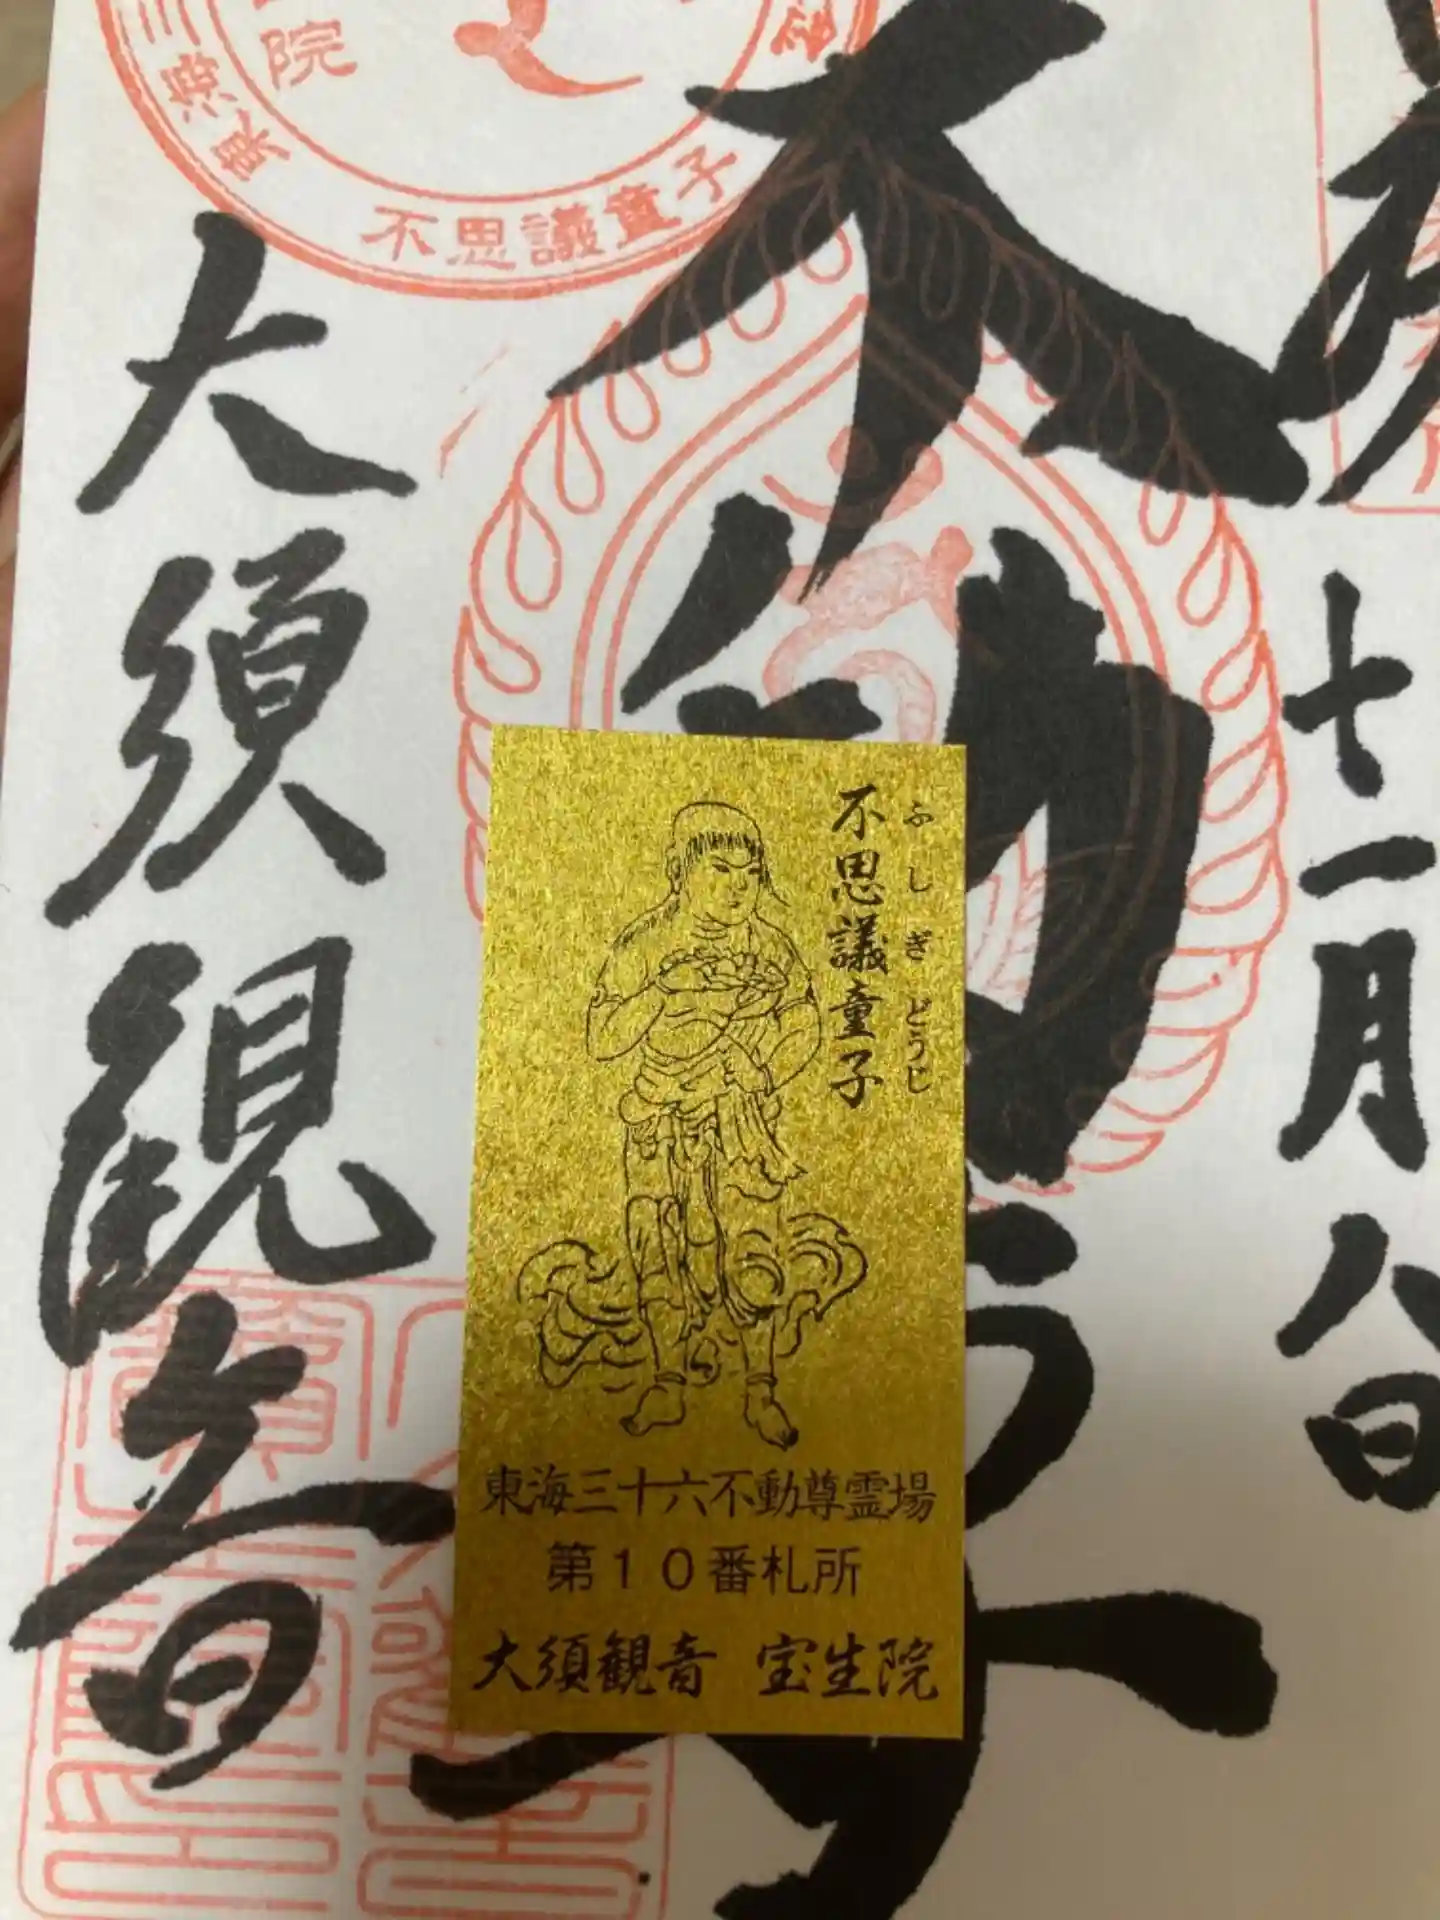 十一月八日
不動尊
大須観音
院
東海
不思議童子
不思議童子
ふしぎどうじ
東海三十六不動尊霊場
第10番札所
大須観音 宝生院